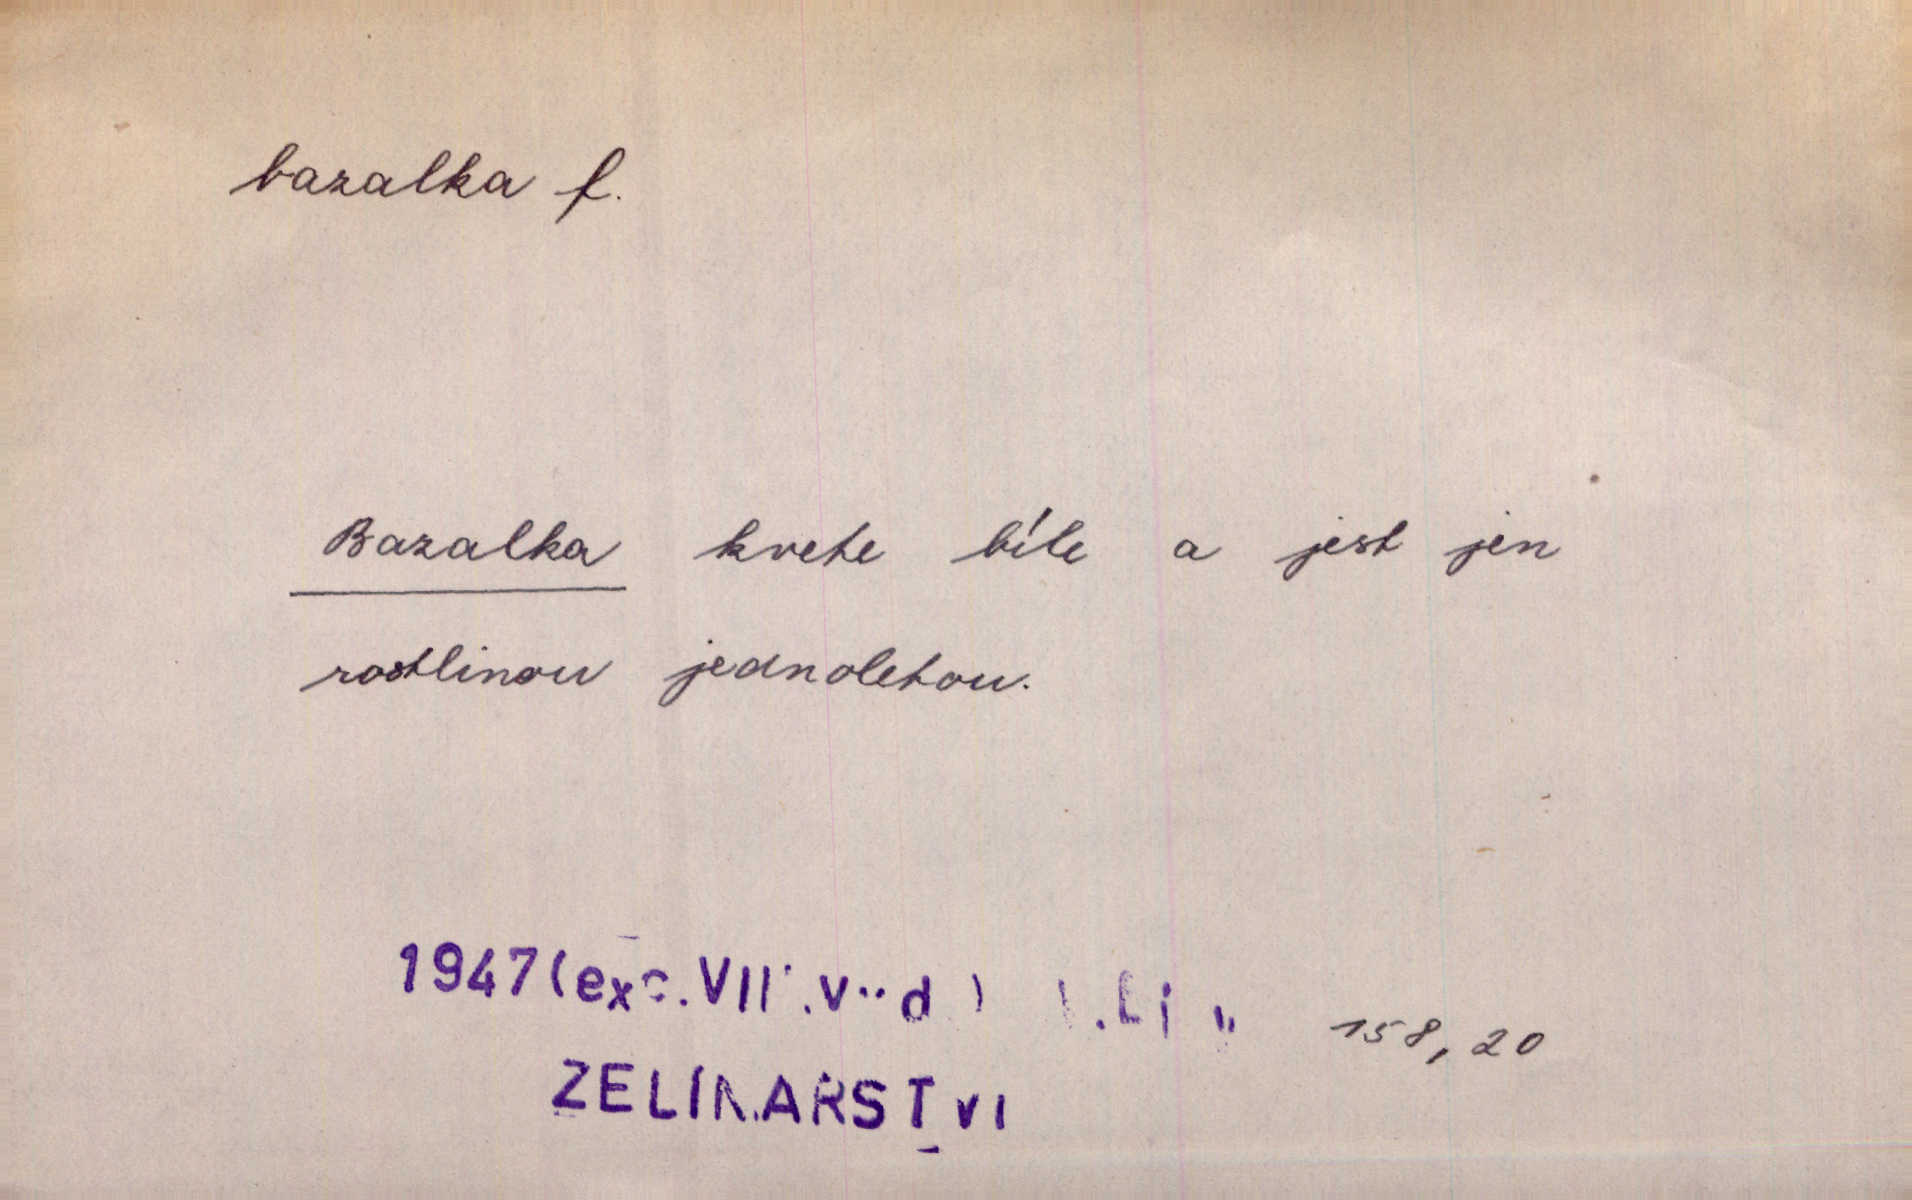 bazalka f.
Bazalka kvete bíle a jest jen
rostlinou jednoletou.
1947 (exc. VII
158, 20
ZELINARSTVI